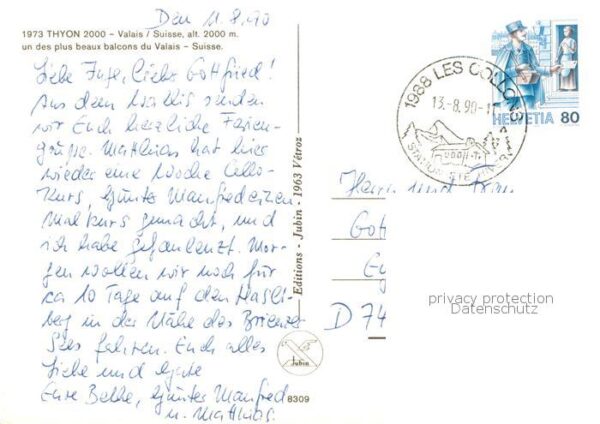 Den 11.8.90
1973 THYON 2000 - Valais / Suisse, alt. 2000 m.
un des plus beaux balcons du Valais - Suisse.
Liebe Inge, lieber Gottfried!
Aus dem Wallis senden
wir Euch herzliche Ferien-
grüsse. Matthias hat hier
wieder eine Woche Cello-
kurs, Günter Manfred einen
Malkurs gemacht, und
ich habe gefaulenzt. Mor-
gen wollen wir noch für
ca 10 Tage auf den Hasli-
berg in der Nähe des Brienzer
Sees fahren. Euch alles
Liebe und Gute
Eure Günter Manfred
u. Matthias.
Editions - Jubin - 1963 Vétroz
Jubin
8309
1988 LES COLLONS
13.-8.90-1
STATION
HELVETIA 80
Herrn und Frau
Got
D 74
privacy protection
Datenschutz